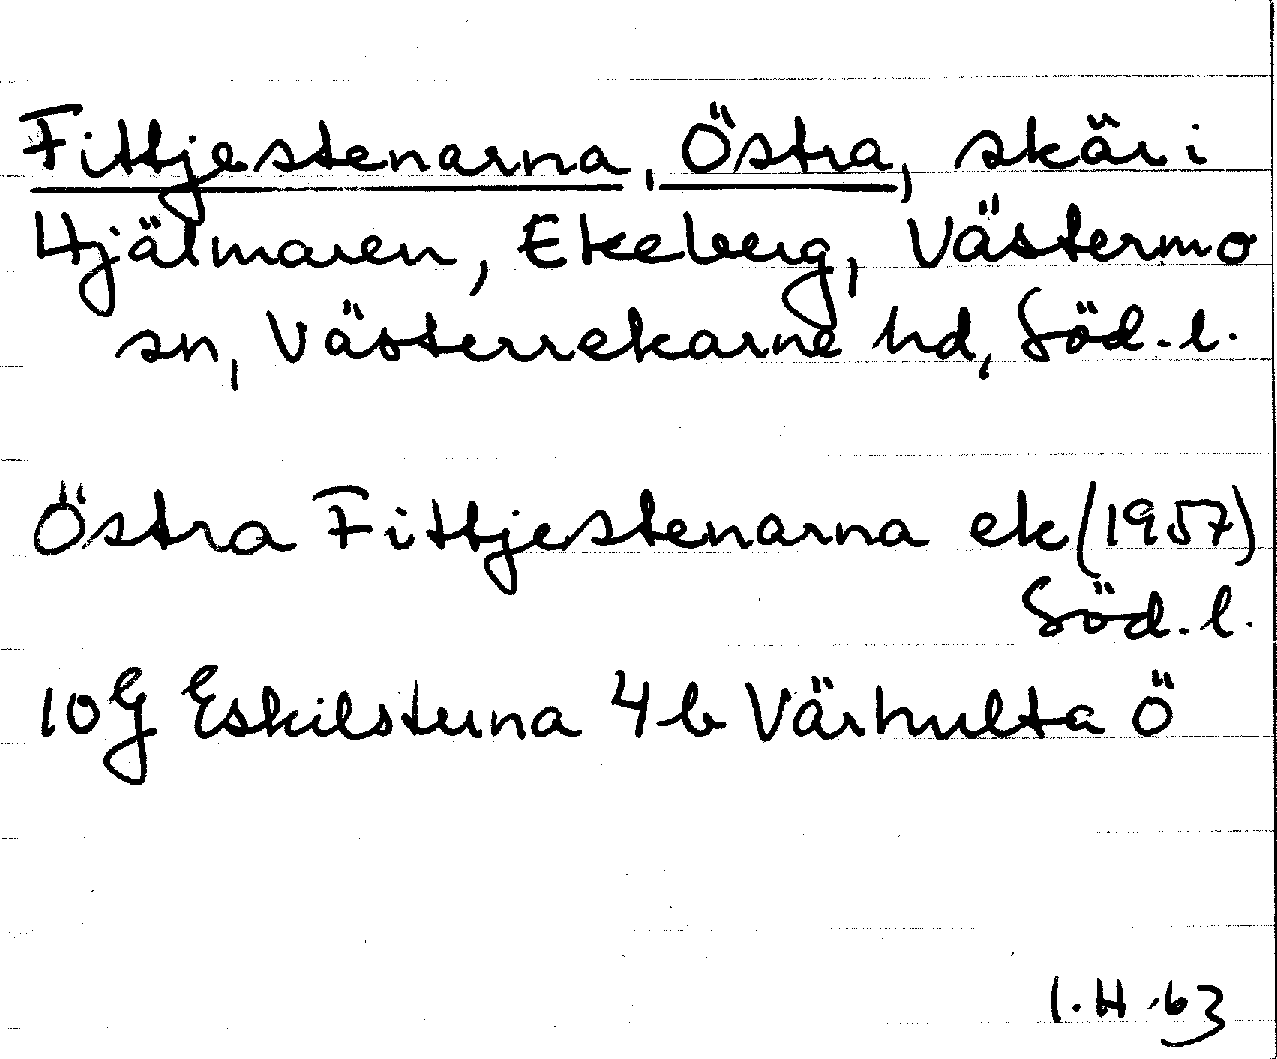 Fittjestenarna, Östra, skär i
Hjälmaren, Ekeberg, Västermo
sn, Västerrekarne hd, Söd. l.
Östra Fittjestenarna ek (1957)
Söd. l.
10G Eskilstuna 4b Värhulta Ö
I.H.63